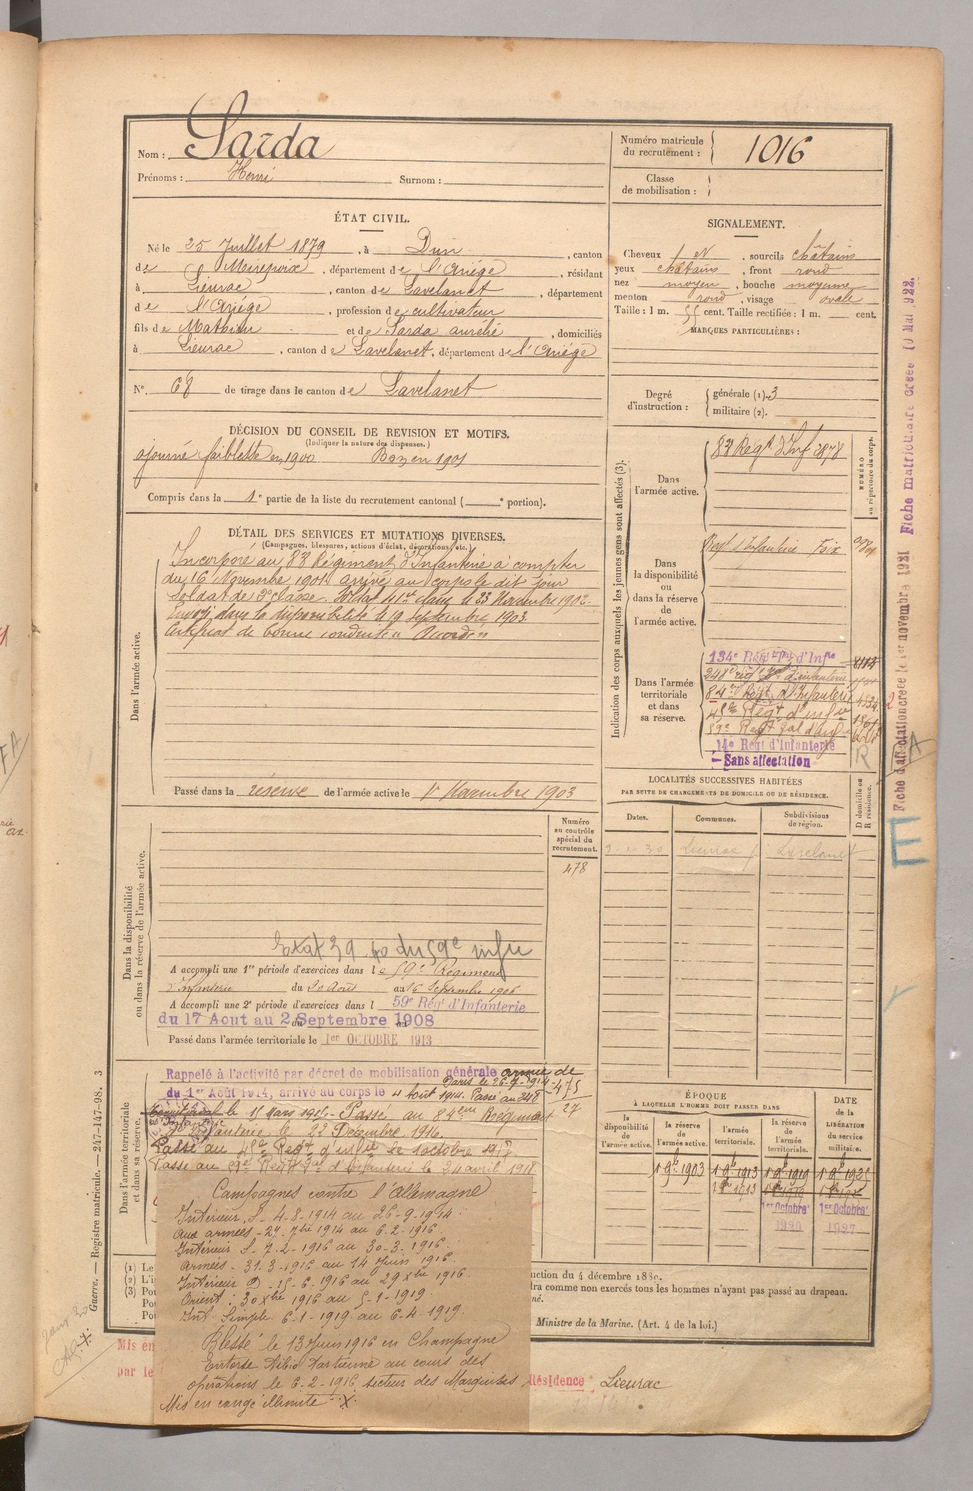 Nom : Sarda
Prénoms : Henri Surnom :
Numéro matricule du recrutement : 1016
Classe de mobilisation :
ÉTAT CIVIL.
Né le 25 Juillet 1879, à Dun, canton
de Mirepoix, département de l'Ariège, résidant
à Lieurac, canton de Lavelanet, département
de l'Ariège, profession de cultivateur
fils de Mathieu et de Sarda aurélie, domiciliés
à Lieurac, canton de Lavelanet, département de l'Ariège
N° 68 de tirage dans le canton de Lavelanet
SIGNALEMENT.
Cheveux et, sourcils châtains
yeux châtains, front rond
nez moyen, bouche moyenne
menton rond, visage ovale
Taille : 1 m. 55 cent. Taille rectifiée : 1 m. cent.
MARQUES PARTICULIÈRES :
DÉCISION DU CONSEIL DE REVISION ET MOTIFS.
(Indiquer la nature des dispenses.)
ajourné faiblesse en 1900 Bon en 1901
Compris dans la 1e partie de la liste du recrutement cantonal ( e portion).
Degré d'instruction : générale (1). 3
militaire (2).
DÉTAIL DES SERVICES ET MUTATIONS DIVERSES.
(Campagnes, blessures, actions d'éclat, décorations, etc.)
Dans l'armée active.
Incorporé au 83e Régiment d'Infanterie à compter
du 16 Novembre 1901 arrivé au corps le dit jour
Soldat de 2e classe. Soldat de 1re classe le 23 Novembre 1902.
Envoyé dans la disponibilité le 19 Septembre 1903.
Certificat de bonne conduite "Accordé"
Passé dans la réserve de l'armée active le 1er Novembre 1903
Indication des corps auxquels les jeunes gens sont affectés (3).
NUMÉRO au répertoire du corps.
Dans l'armée active.
83e Régt d'Inf 2878
Dans la disponibilité ou dans la réserve de l'armée active.
Régt d'Infanterie Foix
Dans l'armée territoriale et dans sa réserve.
134e Régt Tal d'Infie
84e Régt d'Infanterie 4534
59e Regt Tal d'Inf
14e Régt d'Infanterie
Sans affectation
R
Fiche d'affectation créée le 1er novembre 1921 Fiche matriculaire créée 10 Mai 1922.
LOCALITÉS SUCCESSIVES HABITÉES
PAR SUITE DE CHANGEMENTS DE DOMICILE OU DE RÉSIDENCE.
Dates. Communes. Subdivisions de région. D domicile ou R résidence.
Lieurac Lavelanet
E
Dans la disponibilité ou dans la réserve de l'armée active.
Numéro au contrôle spécial du recrutement.
478
A accompli une 1re période d'exercices dans le 59e Régiment
d'Infanterie du 20 Août au 16 Septembre 1906
A accompli une 2e période d'exercices dans l 59e Régt d'Infanterie
du 17 Aout au 2 Septembre 1908
Passé dans l'armée territoriale le 1er OCTOBRE 1913
Dans l'armée territoriale et dans sa réserve.
Rappelé à l'activité par décret de mobilisation générale
du 1er Août 1914, arrivé au corps le 4 Août 1914. Passé au 248e
le 11 Mars 1916. Passé au 84eme Régiment
d'Infanterie le 22 Décembre 1916.
Passé au Regt d'infie le 1 octobre 1917
Passé au Regt Tal d'Infanterie le 24 avril 1918
475
27
ÉPOQUE
À LAQUELLE L'HOMME DOIT PASSER DANS
la disponibilité de l'armée active. la réserve de l'armée active. l'armée territoriale. la réserve de l'armée territoriale. DATE de la LIBÉRATION du service militaire.
1 9bre 1903 1 9bre 1913 1 9bre 1919
1er Octobre 1er Octobre
1920 1927
Campagnes contre l'Allemagne
Intérieur S. 4-8-1914 au 26-9-1914.
Aux armées - 27-7bre 1914 au 6.2-1916.
Intérieur S - 7.2-1916 au 30-3-1916.
Armées - 31.3-1916 au 14 Juin 1916
Intérieur D - 15-6-1916 au 29 Xbre 1916.
Orient : 30 Xbre 1916 au 5-1-1919.
Int. Simple 6-1-1919 au 6-4-1919.
Blessé le 13 Juin 1916 en Champagne
Entorse tibio tarsienne au cours des
opérations le 6-2-1916 secteur des Marquises
Mis en congé illimité
(1) Le
(2) L'i
(3) Pou
Pou
Po
uction du 4 décembre 1889.
dra comme non exercés tous les hommes n'ayant pas passé au drapeau.
né.
Ministre de la Marine. (Art. 4 de la loi.)
Mis en
par le
Résidence Lieurac
Guerre. — Registre matricule. — 247-147-98. 3